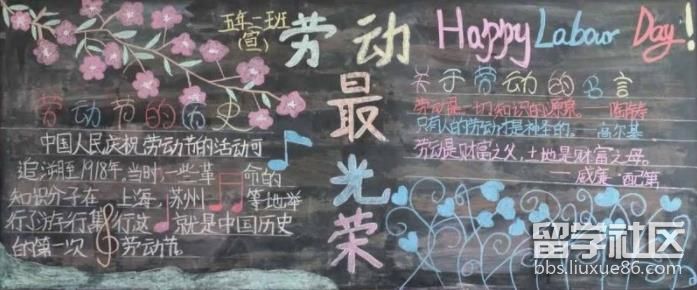 五年一班
(宣)
劳动
最
光
荣
Happy Labour Day!
劳动节的历史
中国人民庆祝劳动节的活动可
追溯至1918年,当时,一些革命的
知识分子在上海,苏州等地举
行了游行集行这就是中国历史
的第一次劳动节.
关于劳动的名言
劳动是一切知识的源泉。 陶铸
只有人的劳动才是神圣的。 高尔基
劳动是财富之父,土地是财富之母。
——威廉·配第
留学社区
bbs.liuxue86.com